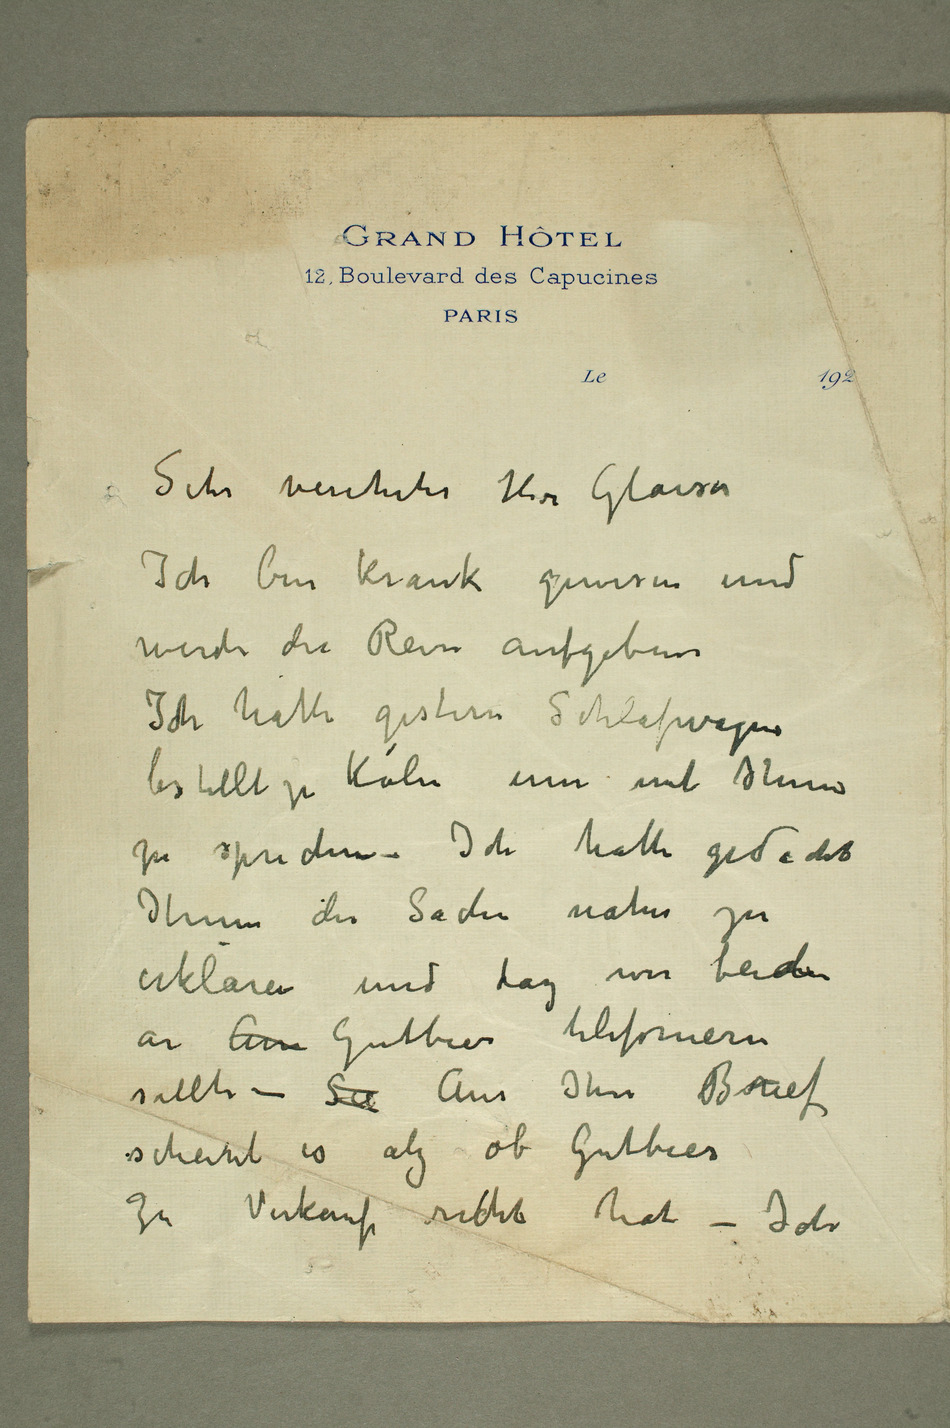 GRAND HÔTEL
12, Boulevard des Capucines
PARIS
Le 192
Sehr verehrter Herr Glaser
Ich bin krank gewesen und
werde die Reise aufgeben
Ich hatte gestern Schlafwagen
bestellt zu Köln um mit Ihnen
zu sprechen – Ich hatte gedacht
Ihnen die Sache näher zu
erklären und daß wir beiden
an Gutbier telefonieren
sollte – Aus Ihre Brief
scheint es alß ob Gutbier
zu Verkauf recht hat – Ich